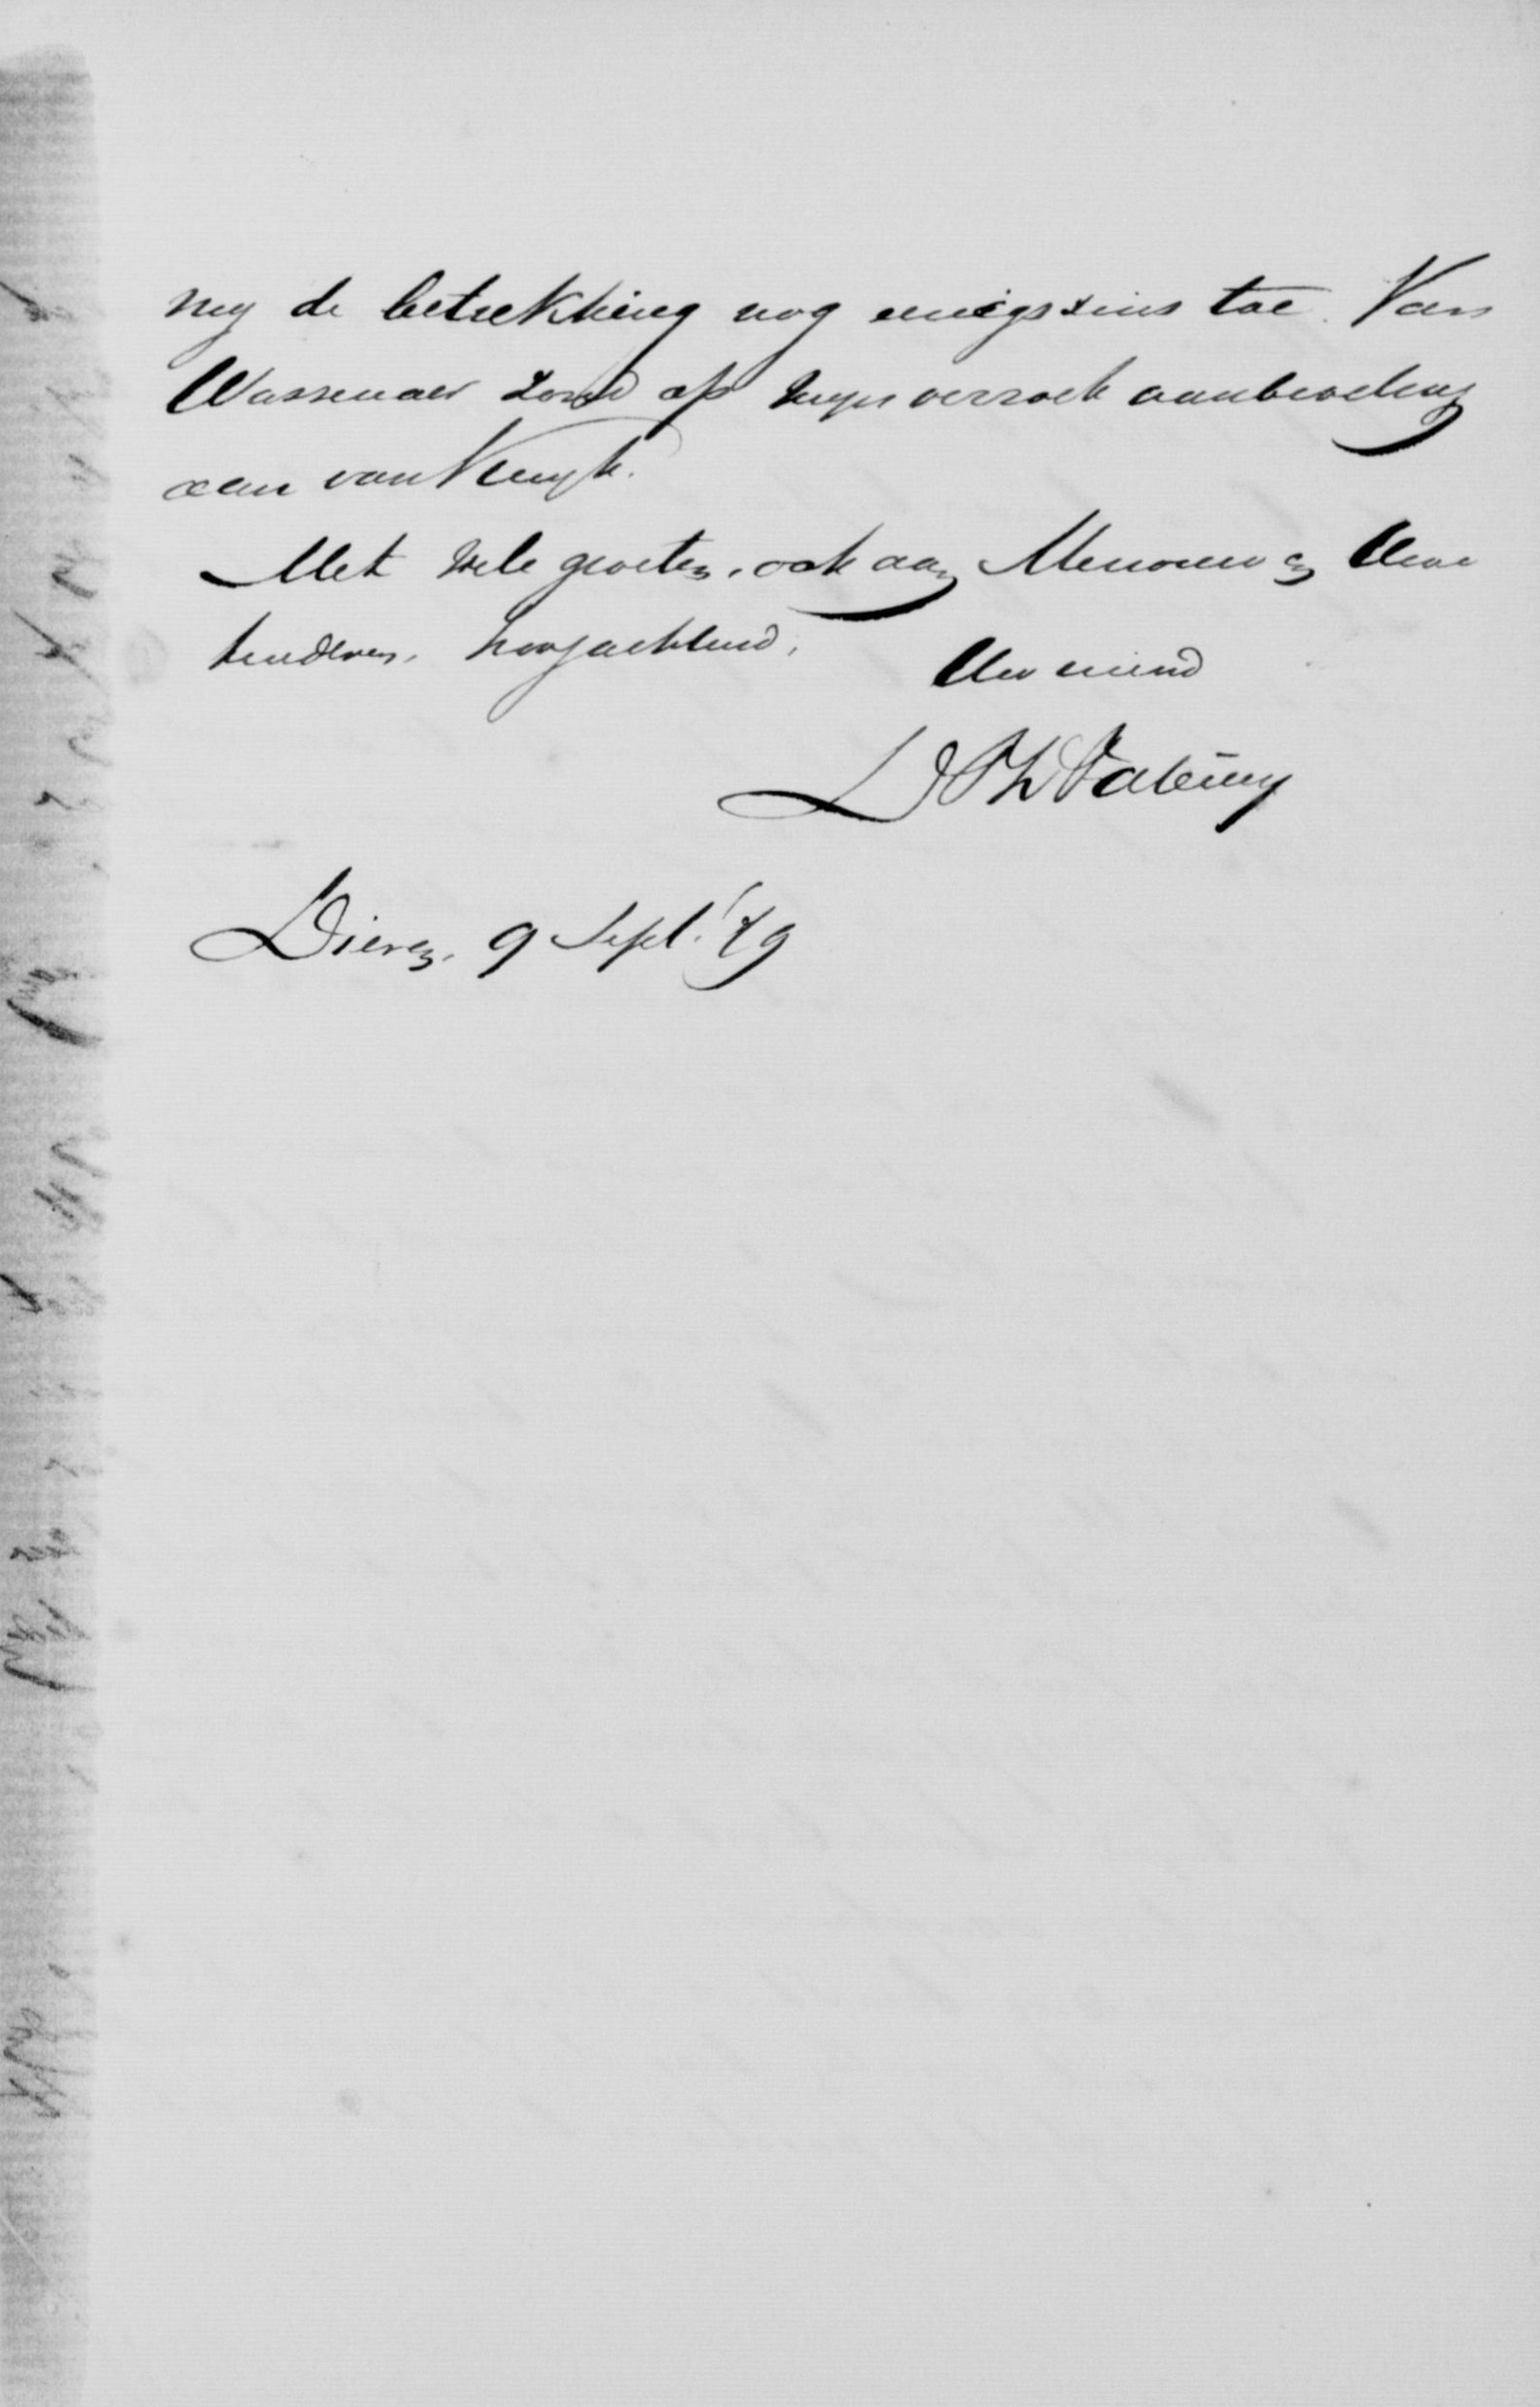 mij de betrekking nog eenigszins toe. Van
Wassenaer zond op mijn verzoek aanbeveling
aan van Kuyk.
Met vele groeten, ook aan Mevrouw en Uwe
kinderen, hoogachtend,
Uw vriend
Dieren, 9 Sept. '79